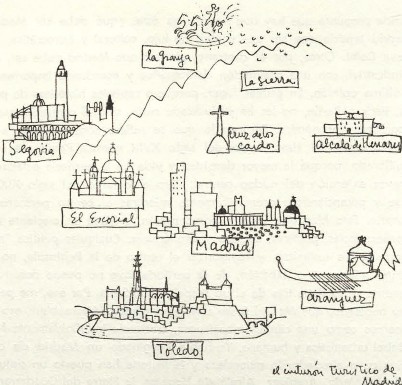 la granja
la sierra
Segovia
cruz de los
caidos
alcalá de Henares
El Escorial
Madrid
aranjuez
Toledo
el cinturón turístico de
Madrid